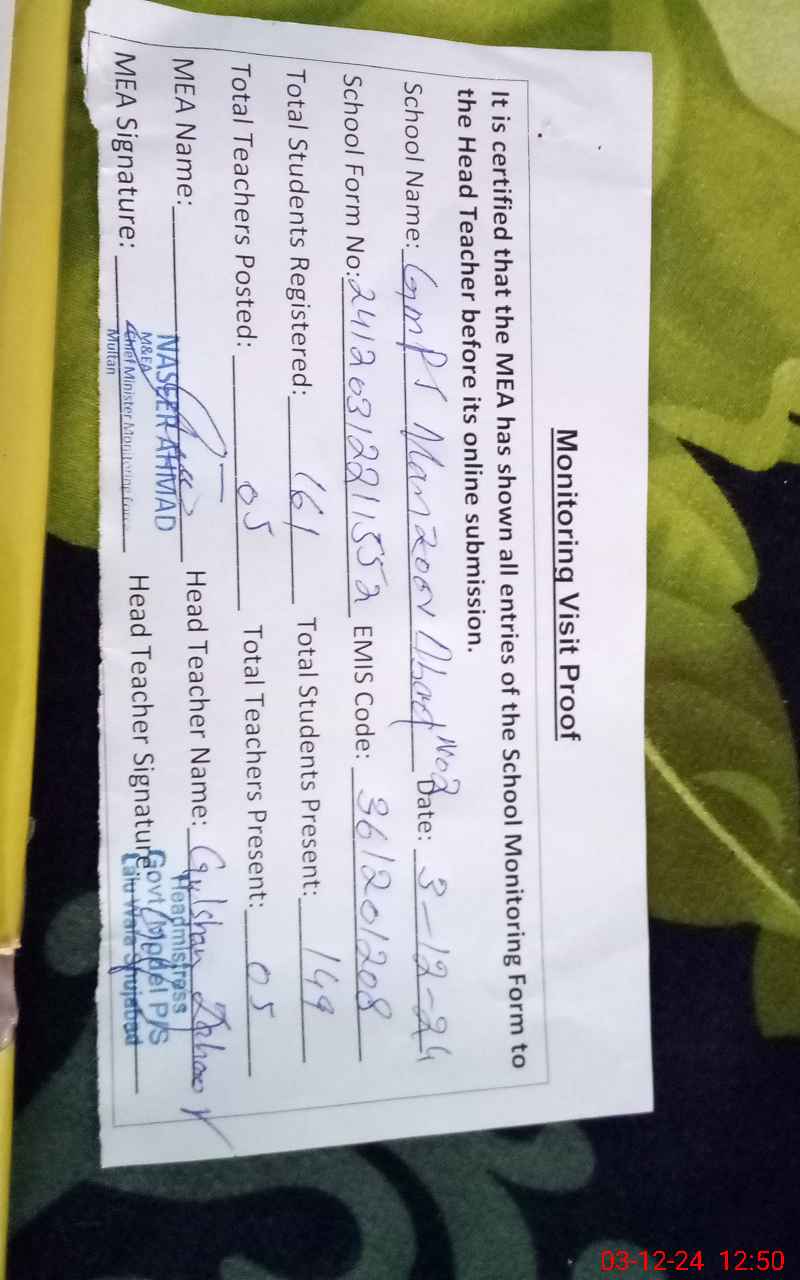 Monitoring Visit Proof
It is certified that the MEA has shown all entries of the School Monitoring Form to
the Head Teacher before its online submission.
School Name: GMPS Manzoor Abad No2 Date: 3-12-24
School Form No: 24120312211552 EMIS Code: 36120 1208
Total Students Registered: 161 Total Students Present: 149
Total Teachers Posted: 05 Total Teachers Present: 05
MEA Name: NASEER AHMAD Head Teacher Name: Gulshan Zahoor
M&EA
Chief Minister Monitoring Force
Multan
MEA Signature: Head Teacher Signature
Headmistress
Govt Model P/S
Lalu Wala Shujabad
03-12-24 12:50